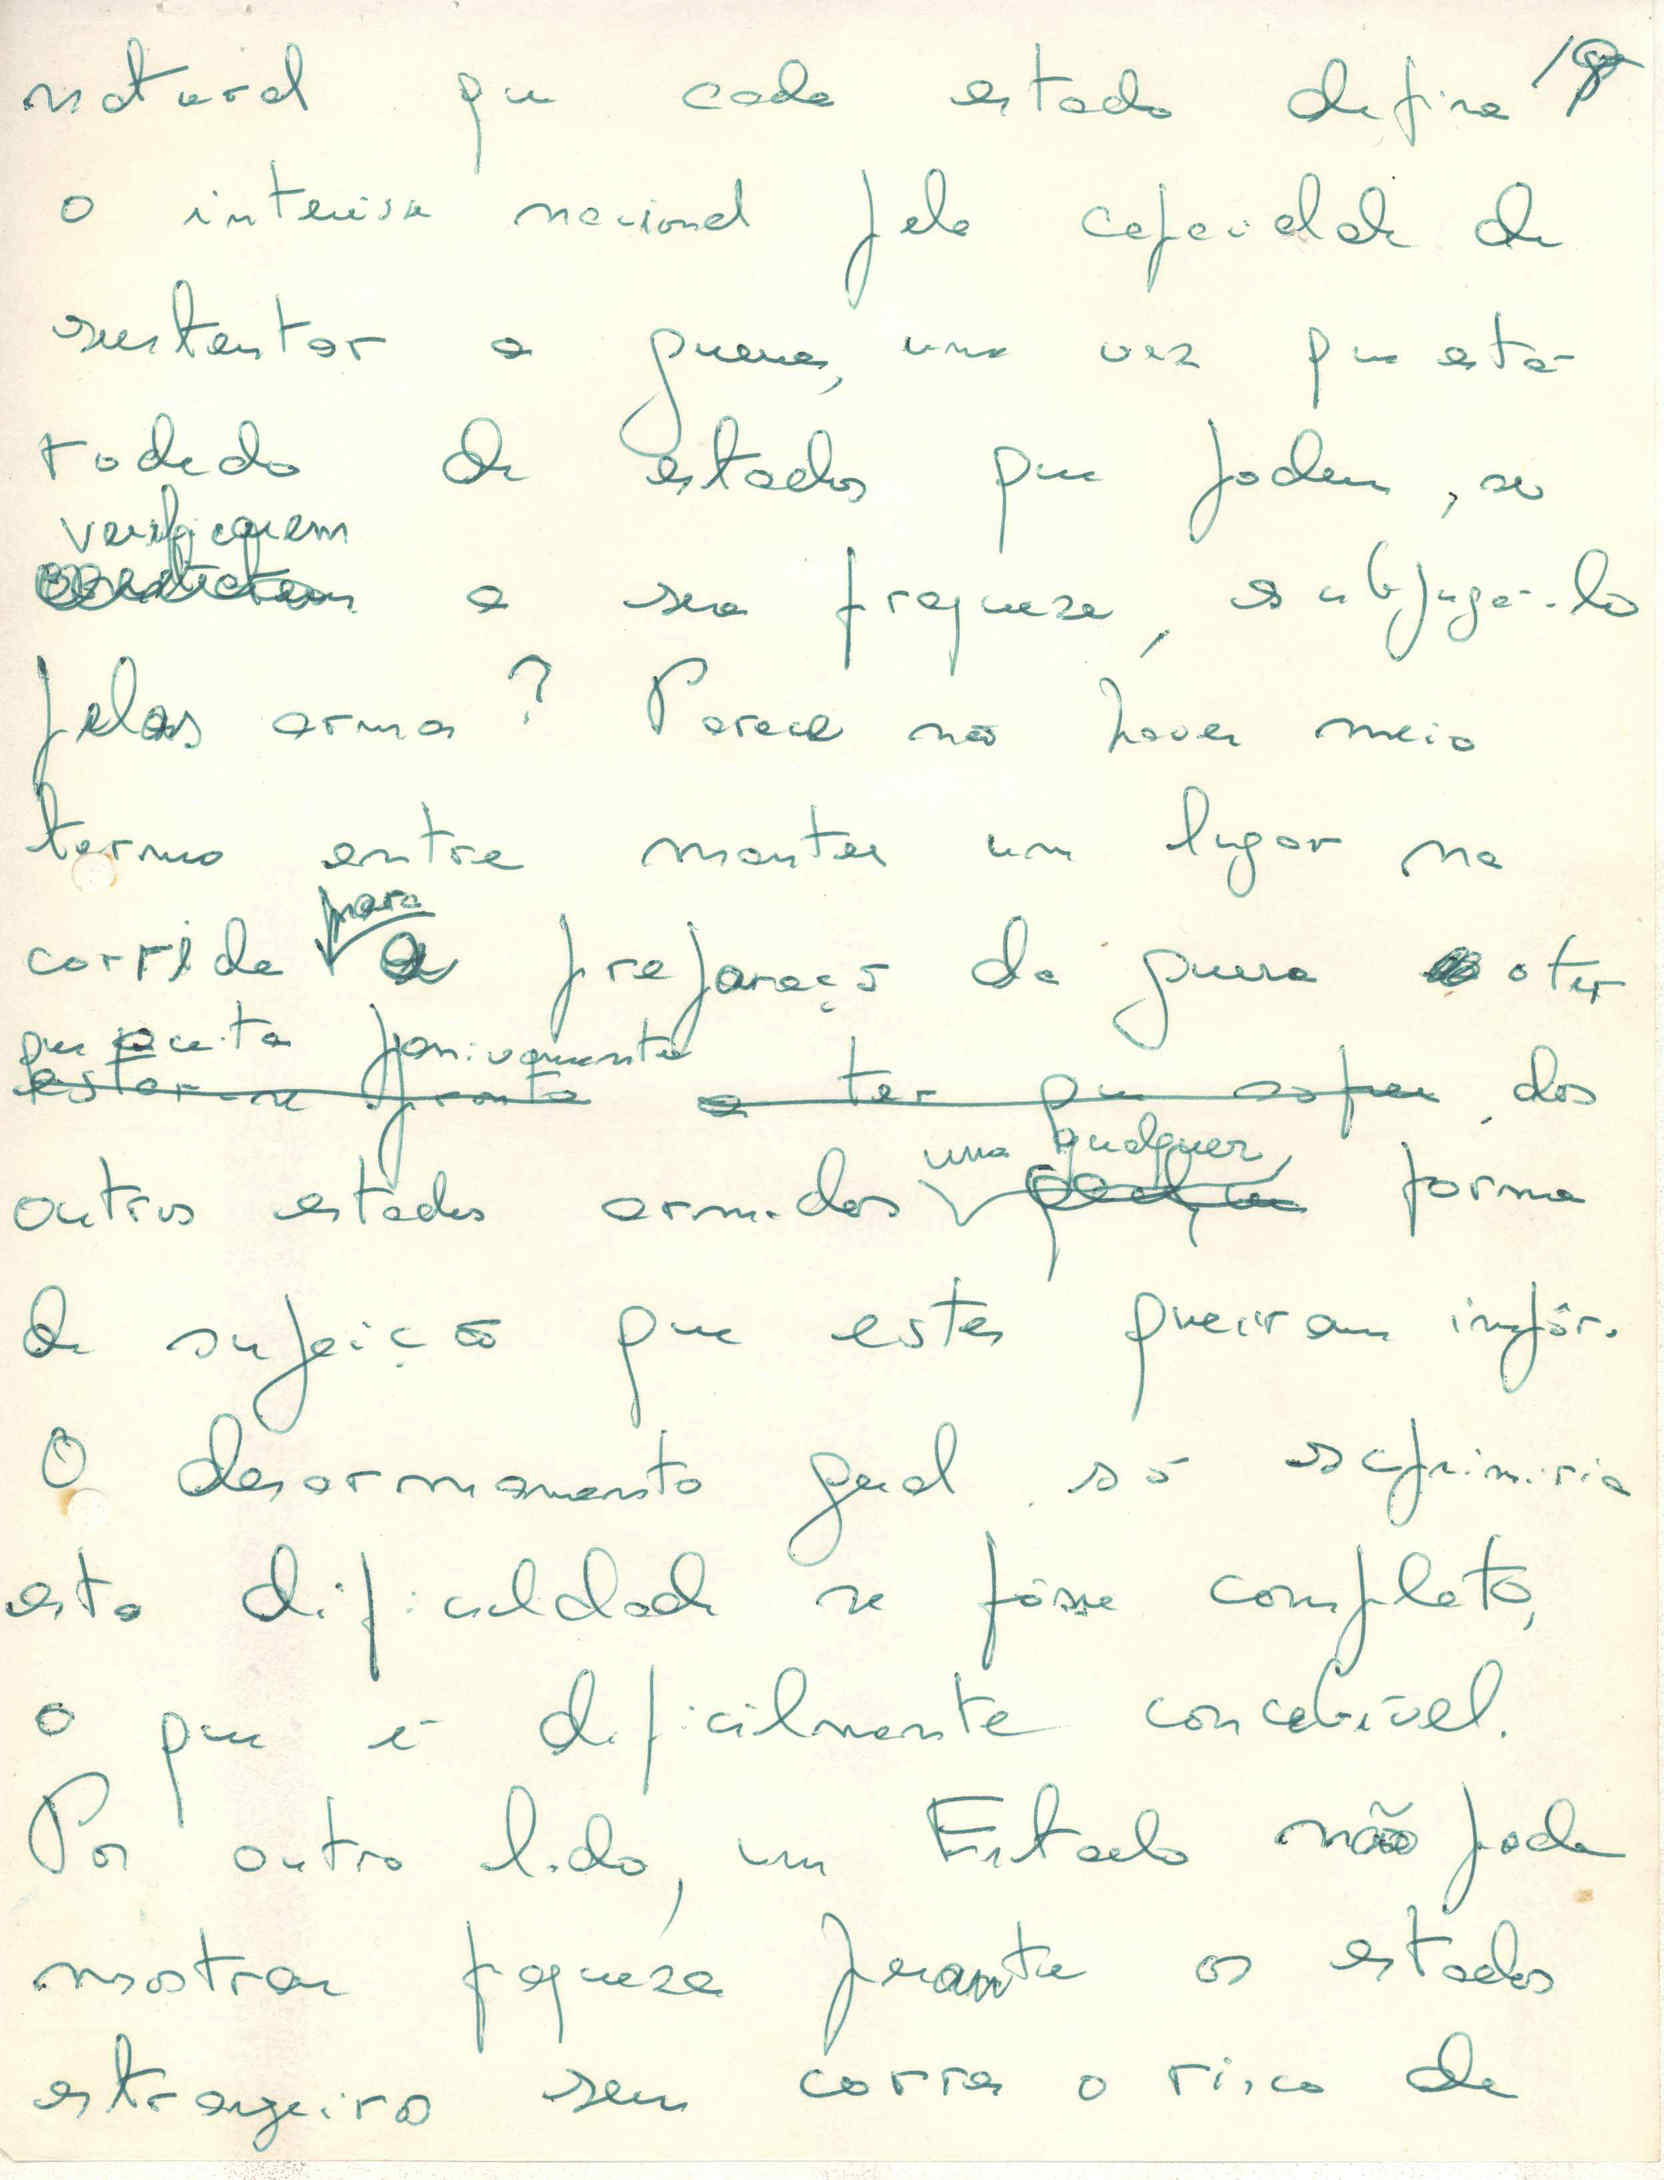 natural que cada estado defina
o interesse nacional pela capacidade de
sustentar a guerra, uma vez que está
rodeado de estados que podem, se
verifiquem
a sua fraqueza, subjugá-lo
pelas armas? Parece não haver meio
termo entre manter um lugar na
para
corrida a preparação da guerra o ter
que aceita passivamente
estar-se pronto a ter que sofrer dos
uma qualquer
outros estados armados forma
de sujeição que estes queiram impôr.
O desarmamento geral só suprimiria
esta dificuldade se fôsse completo,
o que é dificilmente concebível.
Por outro lado, um Estado não pode
mostrar fraqueza perante os estados
estrangeiros sem correr o risco de